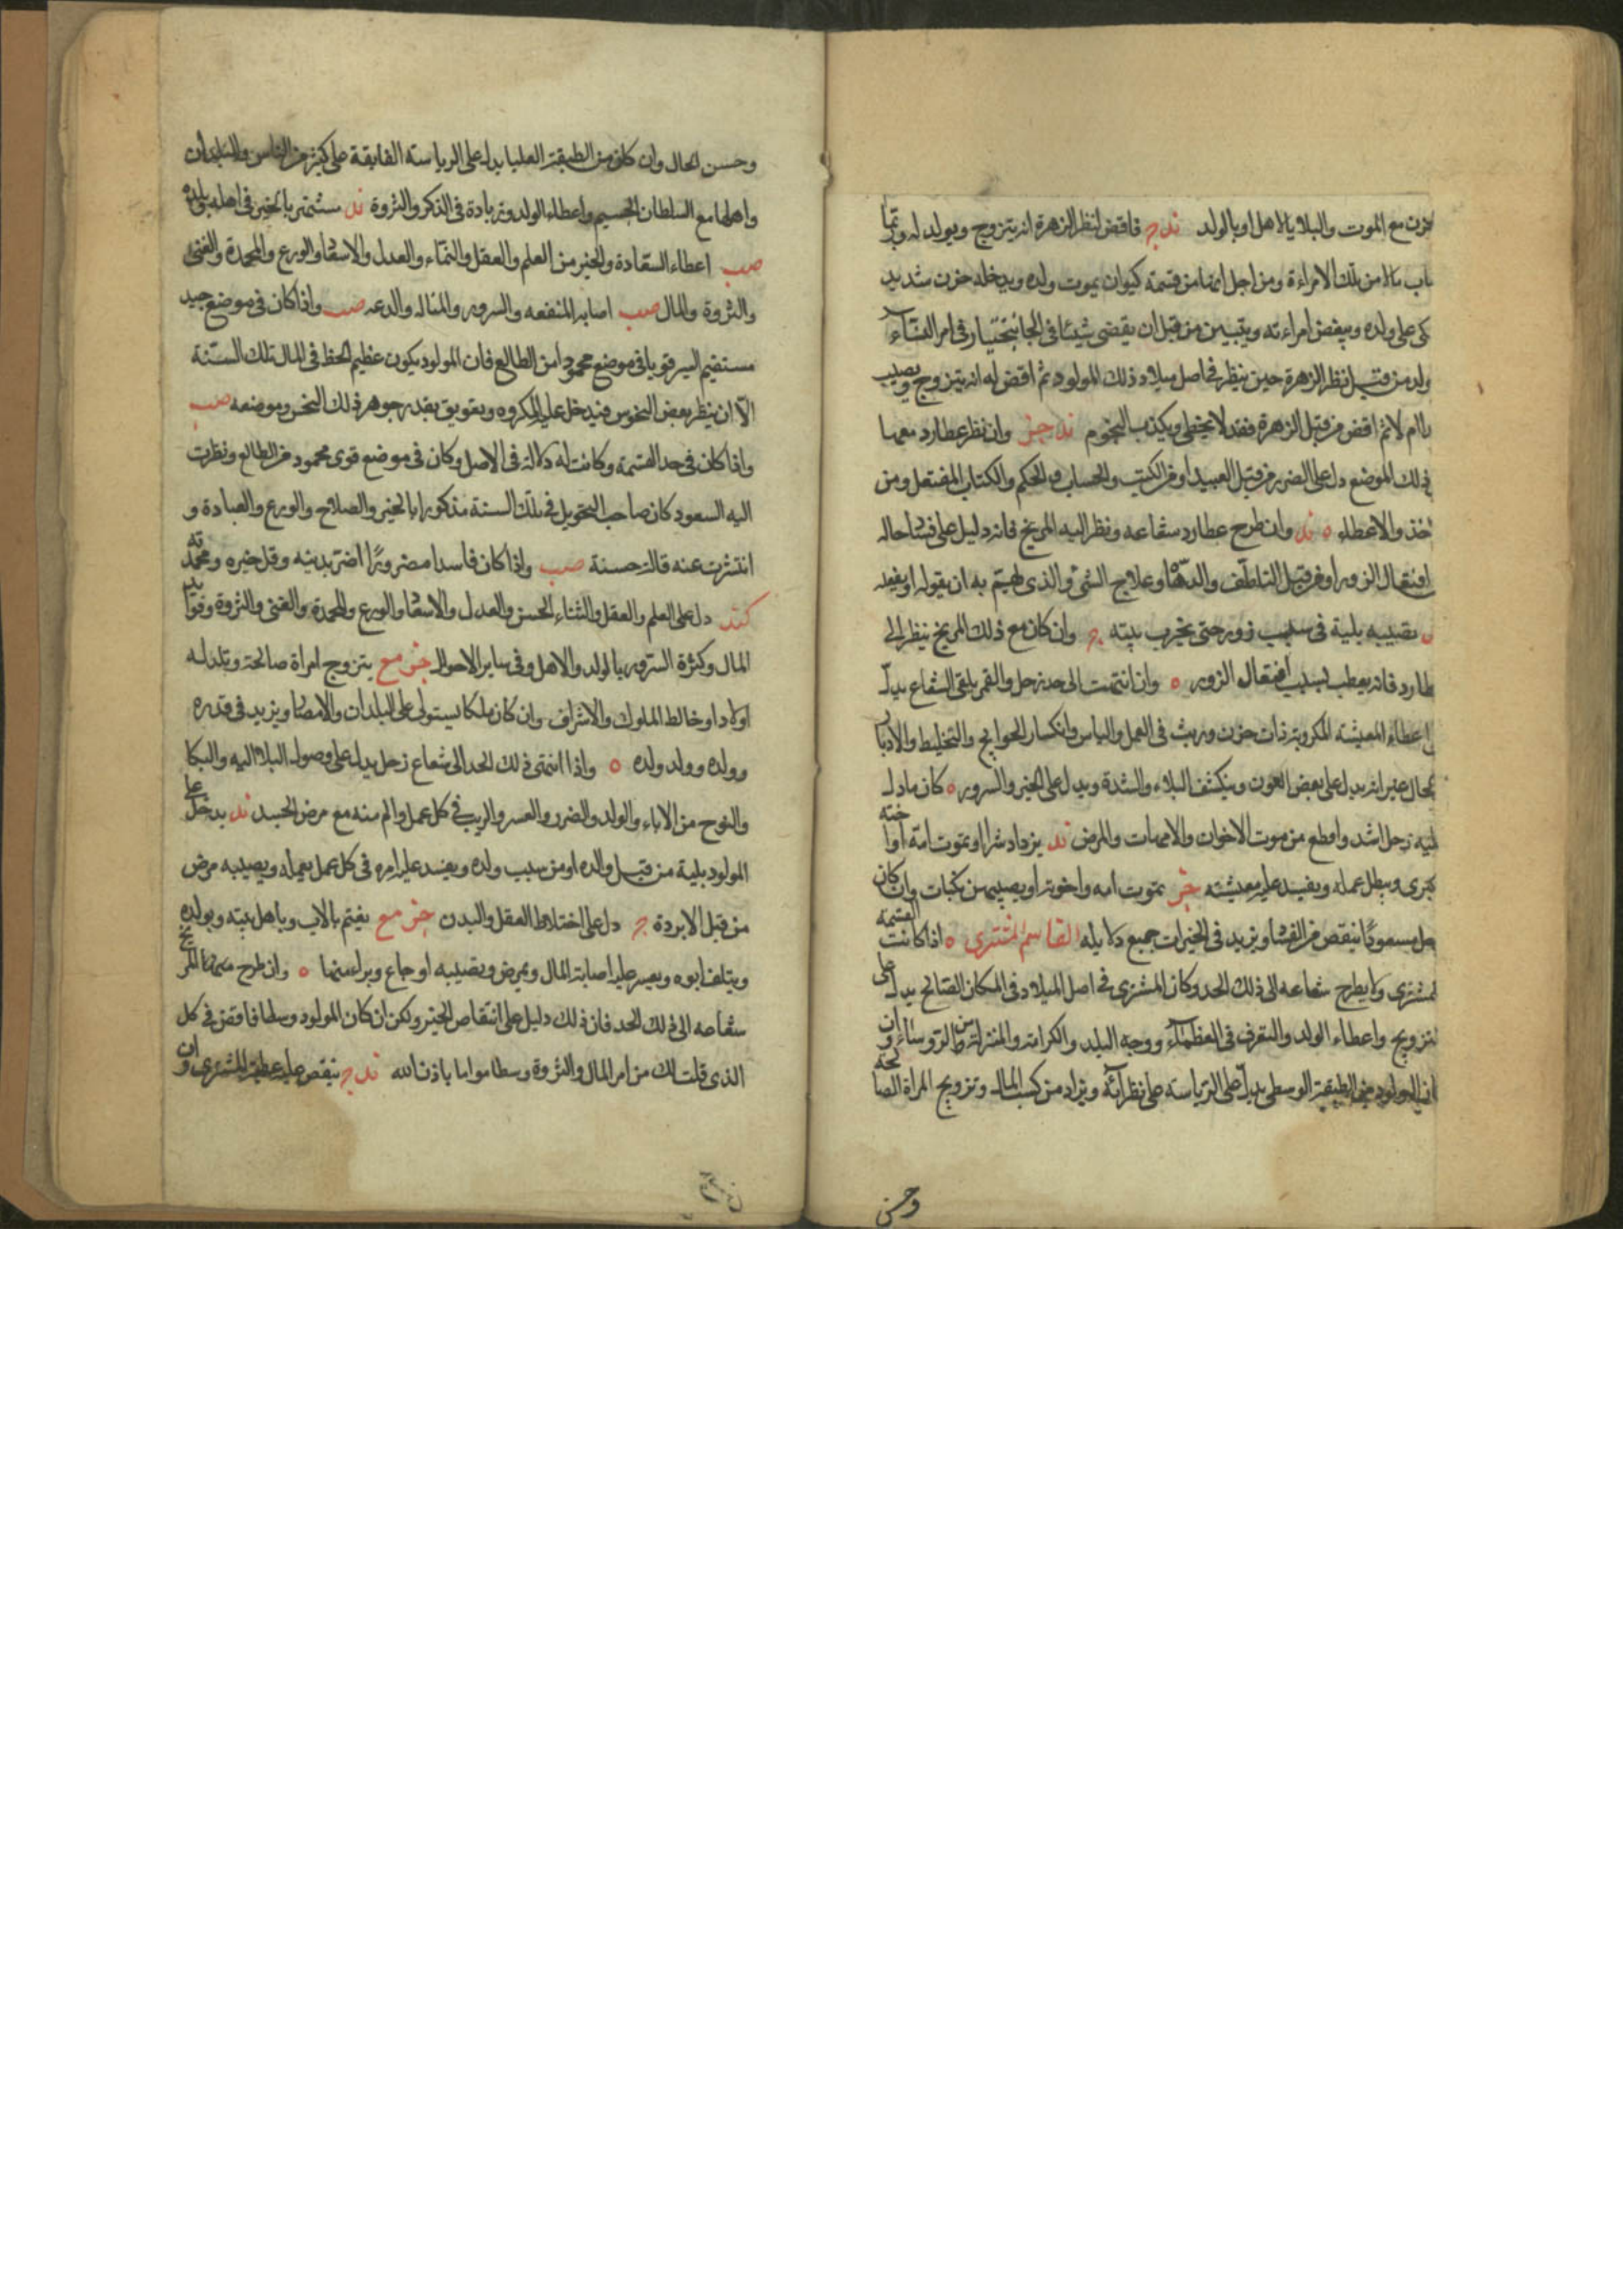 حزن مع الموت والبلايا بالاهل او بالولد ند ج فاقض لنظر الزهرة انه يتزوج ويولد له وربما
باب مالا من تلك الامراءة ومن اجل انها من قسمة كيوان يموت ولده ويدخله حزن شديد
كى على ولده ويبغض امراءته ويتبين من قبل ان يقضى شيئا فى امر النساء
ولد من قبل نظر الزهرة حين ينظر فى اصل ميلاد ذلك المولود ثم اقض له انه يتزوج ويصيب
ام لا ثم اقض من قبل الزهرة فقد لا يخطى ويكذب النجوم ند خز وان نظر عطارد معها
فى ذلك الموضع دل على الضر من قبل العبيد او من الكتب والحساب والحكم والكتاب المفتعل ومن
اخذ والاعطاء ه ند وان طرح عطارد شعاعه ونظر اليه المريخ فانه دليل على فساد حاله
افتعال الزور او من قبل التلطف والدهاء وعلاج الشئ والذى يهتم به ان يقوله او يفعله
تصيبه بلية فى سبب زور حتى يخرب بيته ج وان كان مع ذلك المريخ ينظر الى
طارد فانه يعطب بسبب افتعال الزور ه وان انتهت الى حد زحل والقمر يلقى الشعاع يدل
اعطاء المعيشة المكروبة ذات حزن وريث فى العمل والياس وانكسار الحوايج والتخليط والادبار
بحال غير انه يدل على بعض العون وينكشف البلاء والشدة ويدل على الخير والسرور ه كان ما دل
عليه زحل اشد واقطع من موت الاخوات والامهات والمرض ند يزداد شرا وتموت امه او اخته
كبرى ويبطل عمله ويفسد عليه معيشته خز تموت امه واخوته او يصيبهن نكبات وان كان
حل مسعودا ينقص من الفساد ويزيد فى الخيرات جميع دلايله القاسم المشترى ه اذا كانت القسمة
لمشترى ولا يطرح شعاعه الى ذلك الحد وكان المشترى فى اصل الميلاد فى المكان الصالح يدل على
التزويج واعطاء الولد والتعرف فى العظماء ووجه البلد والكرامة والمنزلة من الروساء وان
ان المولود من الطبقة الوسطى يدل على الرياسة على نظرائه ويزاد من كسب المال وتزويج المراة الصالحة
وحسن
وحسن الحال وان كان من الطبقة العليا يدل على الرياسة الفايقة على كثير من الناس والبلدان
واهلها مع السلطان الجسيم واعطاء الولد وزيادة فى الذكر والثروة ند ستهتر بالخير فى اهله وبلده
صب اعطاء السعادة والخير من العلم والعقل والنماء والعدل والاسفار والورع والمحمدة والغنى
والثروة والمال صب اصابه المنفعه والسرور والمناله والدعه صب واذا كان فى موضع جيد
مستقيم السير قويا فى موضع محمود من الطالع فان المولود يكون عظيم الحظ فى المال تلك السنة
الا ان ينظر بعض النحوس فيدخل عليه المكروه ويعويق بقدر جوهر ذلك النحس وموضعه صب
واذا كان فى حد القسمة وكانت له دلالة فى الاصل وكان فى موضع قوى محمود من الطالع ونظرت
اليه السعود كان صاحب التحويل فى تلك السنة مذكورا بالخير والصلاح والورع والعبادة و
انتشرت عنه قالة حسنة صب واذا كان فاسدا مضرورا اضر بدينه وقل خيره ومحمدته
كند دل على العلم والعقل والثناء الحسن والعدل والاسفار والورع والمحمدة والغنى والثروة وفوايد
المال وكثرة السرور بالولد والاهل وفى ساير الاحوال خز مع يتزوج امراة صالحة وتلد له
اولادا وخالط الملوك والاشراف وان كان ملكا يستولى على البلدان والامصار ويزيد فى قدره
وولده وولد ولده ه واذا انتهى ذلك الحد الى شعاع زحل يدل على وصول البلا اليه والبكا
والنوح من الاباء والولد والضرر والعسر والريب فى كل عمل والم منه مع مرض الجسد ند يدخل على
المولود بلية من قبل والده او من سبب ولده ويفسد عليه امره فى كل عمل يعمله ويصيبه مرض
من قبل الابردة ج دل على اختلاط العقل والبدن خز مع يغتم بالاب وباهل بيته وبولده
ويتلف ابوه ويعسر عليه اصابة المال ويمرض ويصيبه اوجاع ويراء منها ه وان طرح المريخ
شعاعه الى ذلك الحد فان ذلك دليل على انتقاص الخير ولكن ان كان المولود وسطا فاقض فى كل
الذى قلت لك من امر المال والثروة وسطا موا اما باذن الله ند ج ينقص عليه عطية المشترى وان